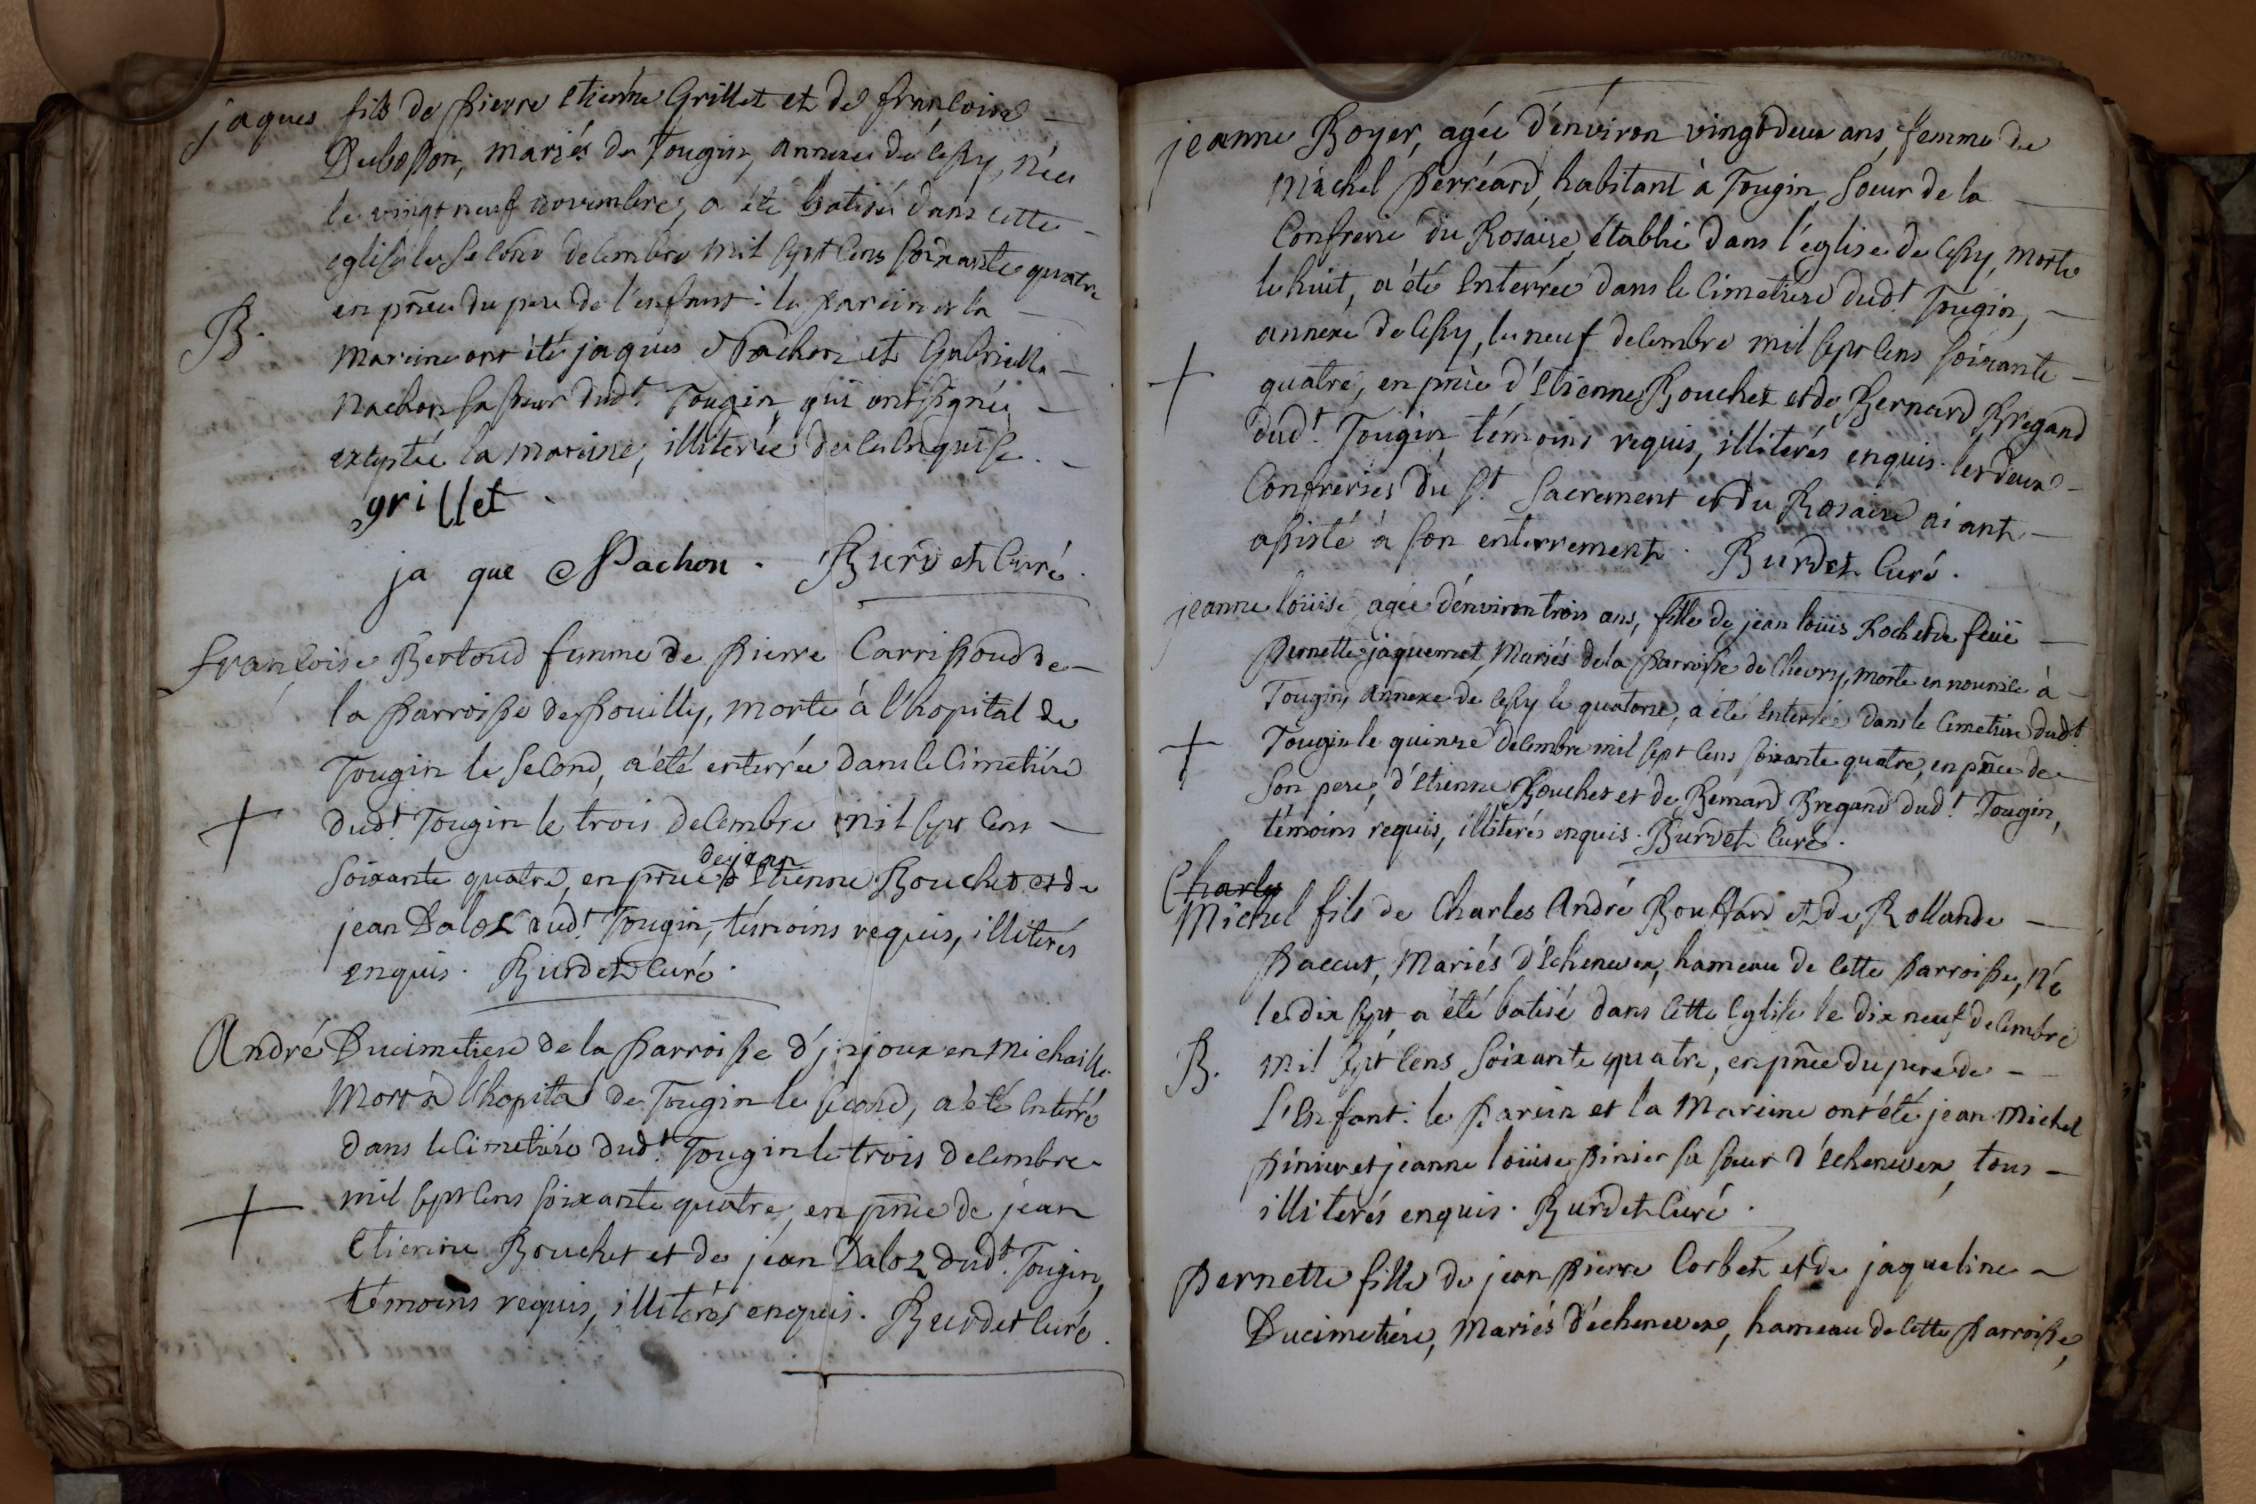 jaques fils de pierre etienne Grillet et de françoise
Dubosson, mariés de Tougin, annexe de Cessy, née
le vingt neuf novembre, a été batisé dans cette
eglise le second decembre mil sept cens soixante quatre
en pñce du pere de l'enfant : le parein et la
B. mareine ont été jaques Nachon et Gabrielle
Nachon sa sœur dudt. Tougin, qui ont signé,
exceptée la mareine, illiterée de ce enquise.
grillet.
ja que Nachon. Burdet Curé.
françoise Bertoud femme de pierre Carrissoud de
la parroisse de pouilly, morte à l'hopital de
Tougin le second, a été enterrée dans le Cimetiére
dudt Tougin le trois decembre mil sept cens
de jean
soixante quatre, en pñce d'Etienne Bouchet et de
jean Daloz dudt. Tougin, témoins requis, illiterés
enquis. Burdet Curé.
André Ducimetiere de la parroisse d'jnjoux en Michaille
mort à l'hopital de Tougin le second, a été enterré
dans le Cimetiére dudt. Tougin le trois decembre
mil sept cens soixante quatre, en pñce de jean
Etienne Bouchet et de jean Daloz dudt. Tougin,
témoins requis, illiterés enquis. Burdet Curé.
jeanne Royer, agée d'environ vingt deux ans, femme de
Michel perréard, habitant à Tougin, sœur de la
Confrerie du Rosaire, établie dans l'église de Cessy, morte
le huit, a été enterrée dans le Cimetiére dudt. Tougin,
annexe de Cessy, le neuf decembre mil sept cens soixante
quatre, en pñce d'Etienne Bouchet et de Bernard Bregand
dudt. Tougin, témoins requis, illiterés enquis. les deux
Confreries du St. Sacrement et du Rosaire aiant
assisté à son enterrement. Burdet Curé.
jeanne loüise, agée d'environ trois ans, fille de jean loüis Roch et de feüe
pernette jaquemet, Mariés de la parroisse de Chevry, morte en nourice à
Tougin, annexe de Cessy le quatorze, a été enterrée dans le Cimetiere dudt.
Tougin le quinze decembre mil sept cens soixante quatre, en pñce de
son pere, d'Etienne Bouchet et de Bernard Bregand dudt. Tougin,
témoins requis, illiterés enquis. Burdet Curé.
Charles
Michel fils de Charles André Bouffard et de Rollande
paccut, Mariés d'Echenevex, hameau de cette parroisse, né
le dix sept, a été batisé dans cette Eglise le dix neuf decembre
B. mil sept cens soixante quatre, en pñce du pere de
l'Enfant : le parein et la Mareine ont été jean Michel
pinier et jeanne loüise pinier sa sœur d'Echenevex, tous
illiterés enquis. Burdet Curé.
pernette fille de jean pierre Corbet et de jaqueline
Ducimetiére, Mariés d'échenevex, hameau de cette parroisse,